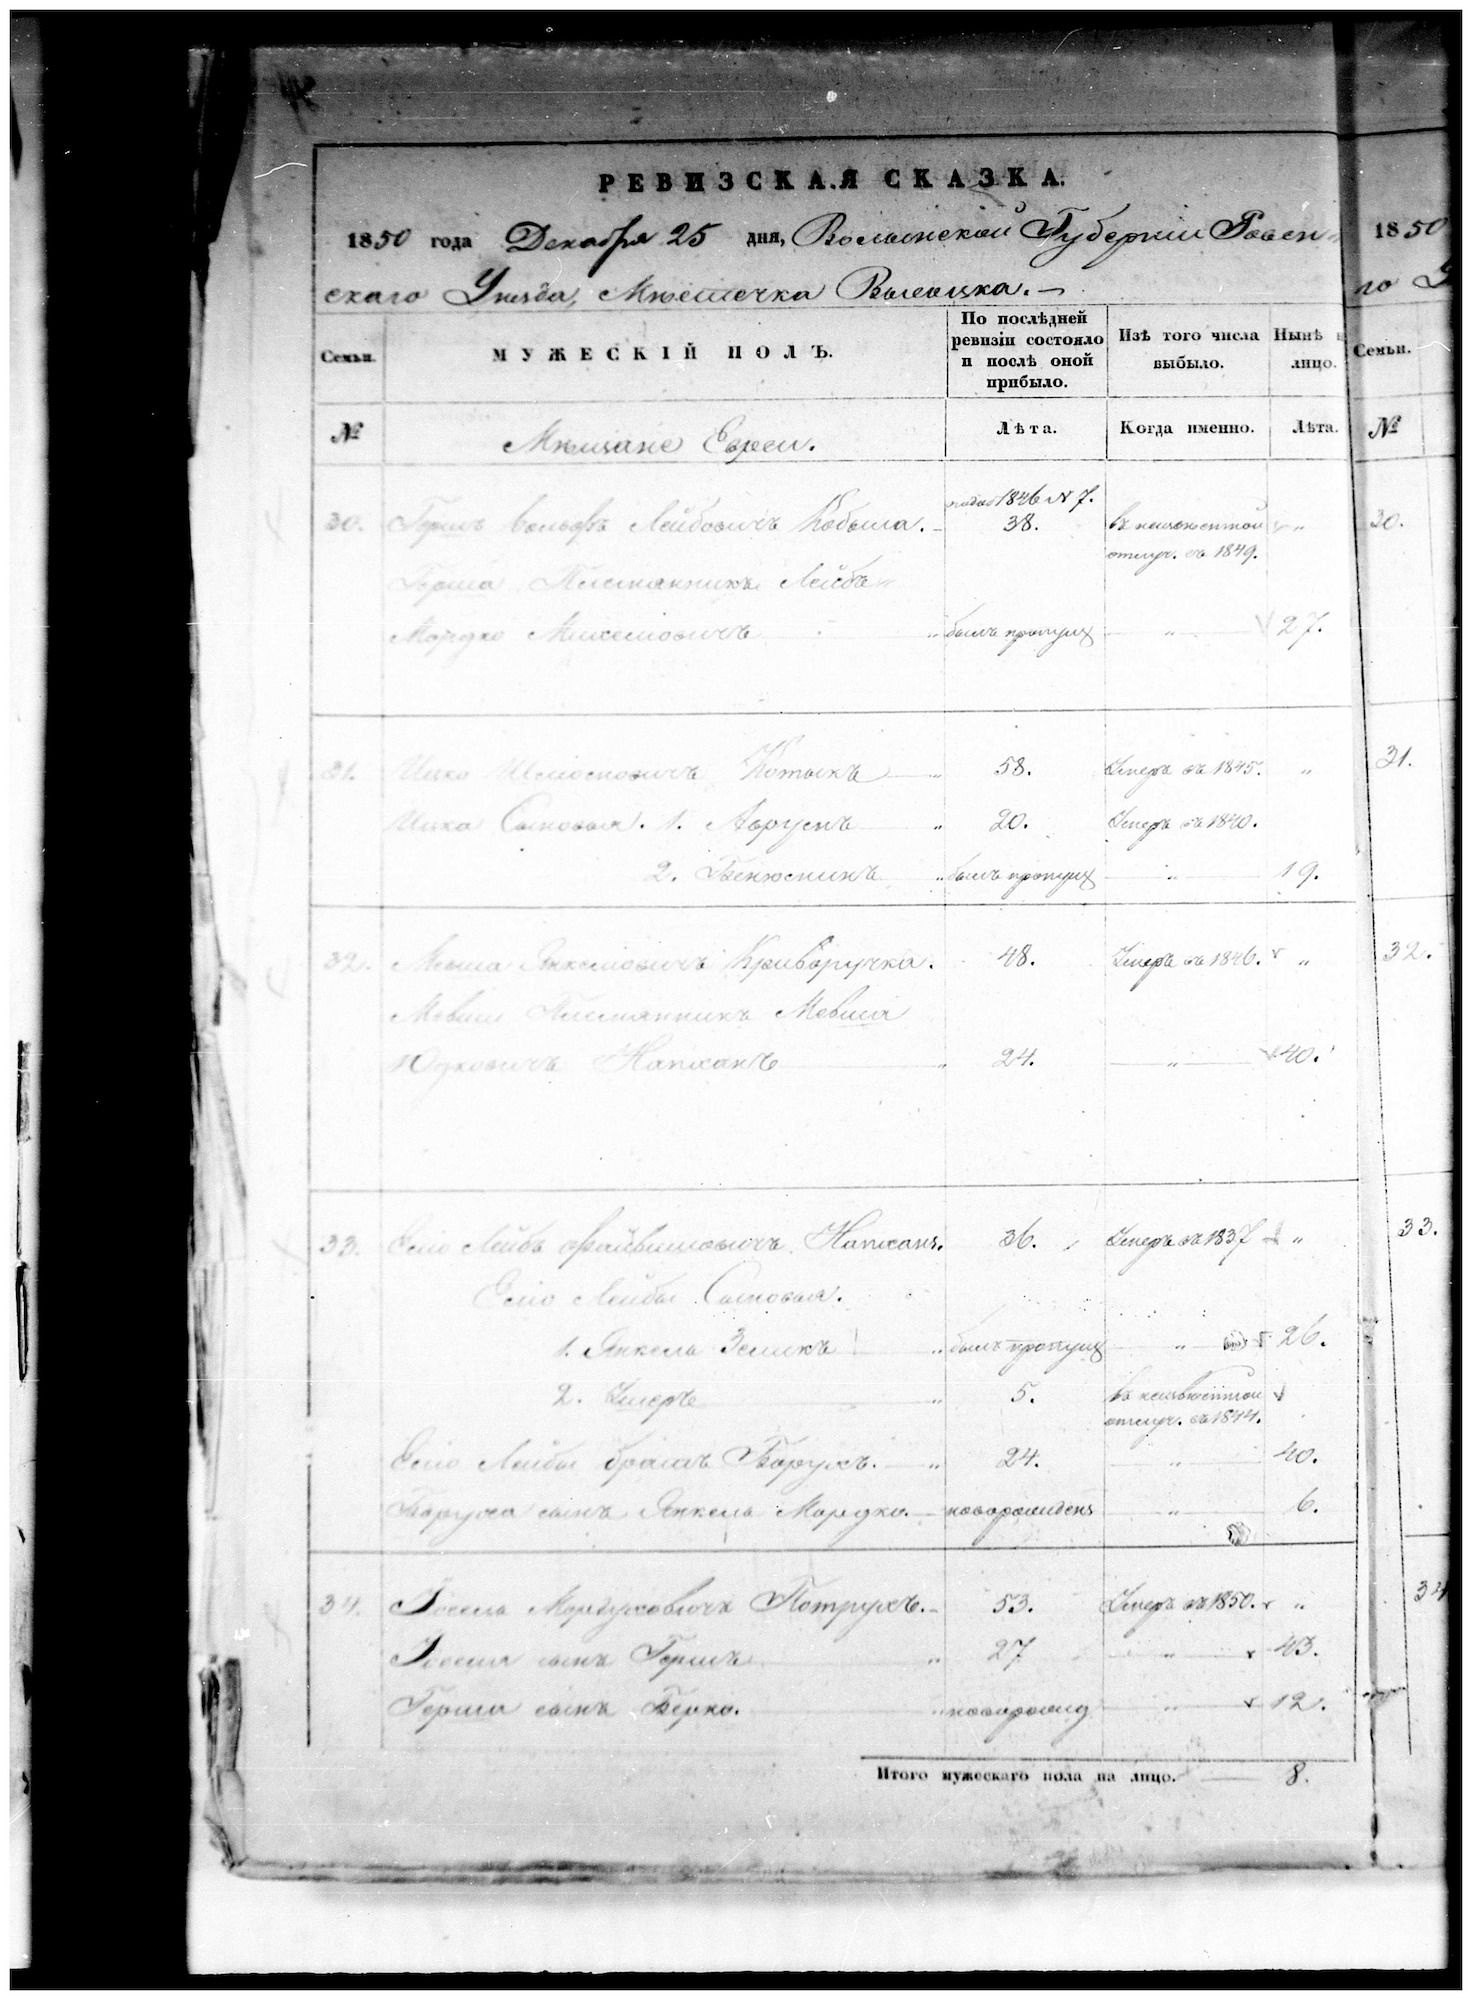 РЕВИЗСКАЯ СКАЗКА.
1850 года Декабря 25 дня, Волынской Губернiи Ровен-
скаго Уѣзда, Мѣстечка Высоцка.
1850
го У
Семьи.
МУЖЕСКIЙ ПОЛЪ.
По послѣдней ревизiи состояло и послѣ оной прибыло.
Изъ того числа выбыло.
Нынѣ н лицо.
Семьи.
№
Мѣщане Евреи.
Лѣта.
Когда именно.
Лѣта.
№
1846 № 7.
30. Гершъ Вольфъ Лейбовичъ Кобыла. 38. въ неизвѣстной " 30.
отлуч. съ 1849.
Герша Племянникъ Лейбъ
Мордко Михелiовичъ " былъ пропущ " 27.
31. Ицко Шлiомовичъ Котыкъ " 58. Умеръ въ 1845. " 31.
Ицка Сыновья. 1. Аврумъ " 20. Умеръ въ 1840.
2. " былъ пропущ " 19.
32. Мовша Янкелiовичъ Криворучка. 48. Умеръ въ 1846. " 32.
Мовши Племянникъ Мовша
Юдковичъ " 24. " 40.
33. Есiо Лейбъ Файвишовичъ 36. Умеръ въ 1837 " 33.
Есiо Лейбы Сыновья.
1. Янкель Зеликъ " былъ пропущ " 26.
2. " 5. въ неизвѣстной
отлуч. съ 1844.
Есiо Лейбы братъ Борухъ. " 24. " 40.
Боруха сынъ Янкель Мордко. новорожденъ " 6.
34. Iосель Мордуховичъ Потрухъ. 53. Умеръ въ 1850. " 34
Iоселя сынъ Гершъ " 27 " 43.
Герша сынъ Берко. " новорожд " 12.
Итого мужескаго пола на лицо. 8.